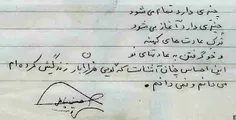 چیزی دارد تمام می شود
چیزی دارد آغاز می شود
ترک عادت های کهنه
و خو گرفتن به عادتهای نو
این احساس چنان آشناست که گویی هزاران بار زندگیش کرده ام
می دانم و نمی دانم.
حسین پناهی